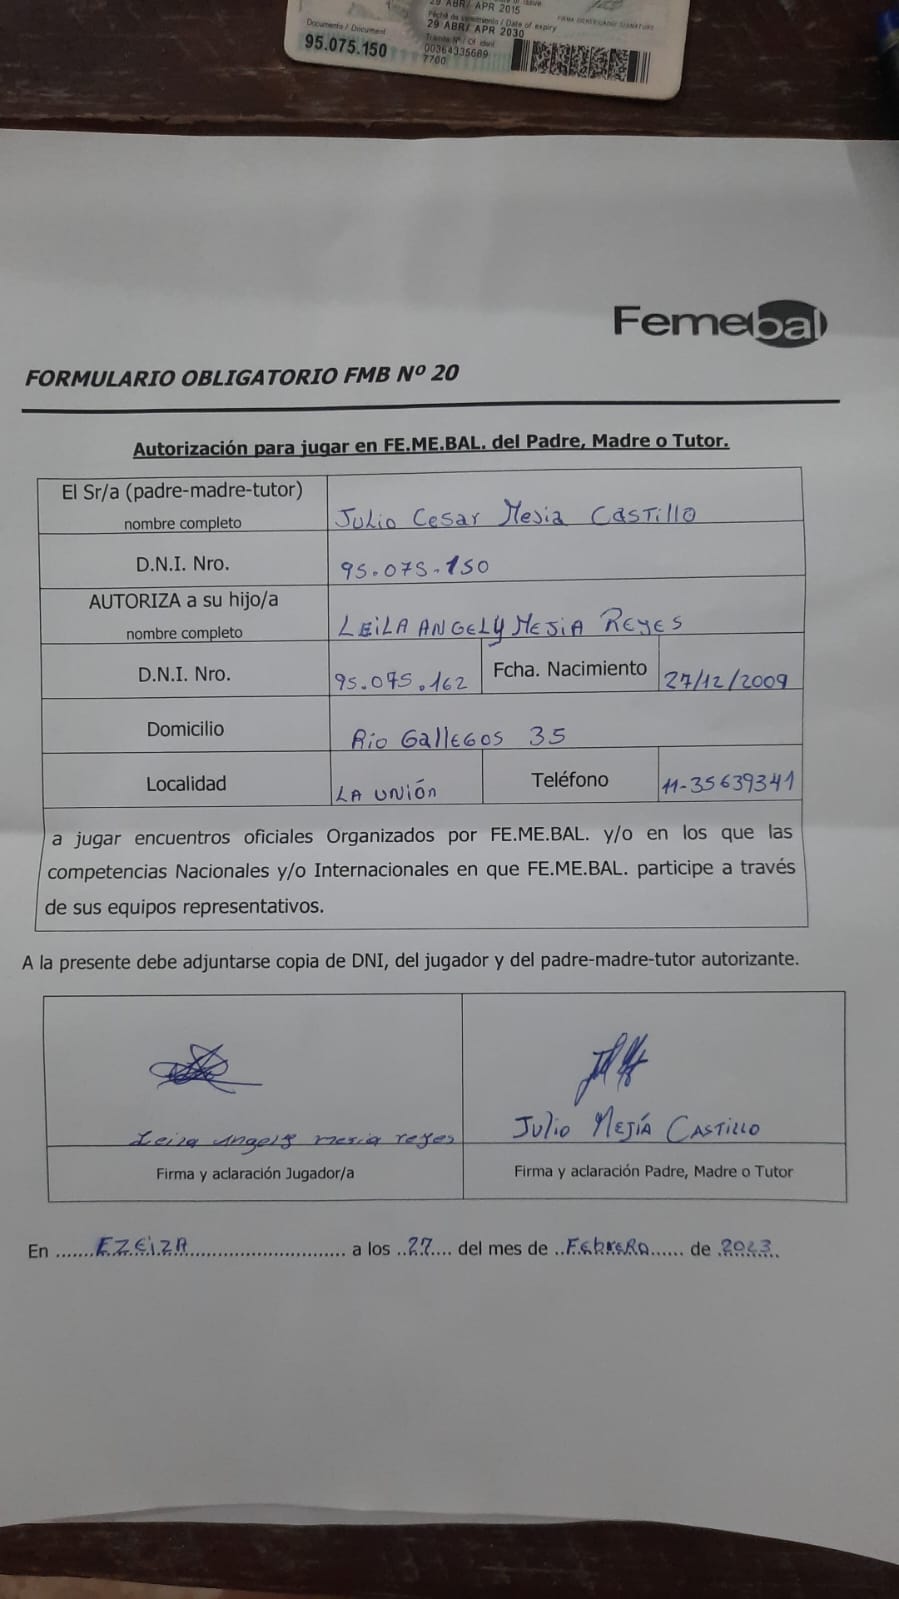 29 ABR/ APR 2015
Fecha de vencimiento / Date of expiry
29 ABR/ APR 2030
Documento / Document
95.075.150
Trámite Nº / Of. ident
00364335689
7700
Femebal
FORMULARIO OBLIGATORIO FMB Nº 20
Autorización para jugar en FE.ME.BAL. del Padre, Madre o Tutor.
El Sr/a (padre-madre-tutor)
nombre completo
Julio Cesar Mejia Castillo
D.N.I. Nro.
95.075.150
AUTORIZA a su hijo/a
nombre completo
LEILA ANGELY MEJIA REYES
D.N.I. Nro.
95.075.162
Fcha. Nacimiento
27/12/2009
Domicilio
Rio GallEGOS 35
Localidad
LA UNIÓN
Teléfono
11-35639341
a jugar encuentros oficiales Organizados por FE.ME.BAL. y/o en los que las
competencias Nacionales y/o Internacionales en que FE.ME.BAL. participe a través
de sus equipos representativos.
A la presente debe adjuntarse copia de DNI, del jugador y del padre-madre-tutor autorizante.
Leila angely mesia reyes
Julio MEJÍA CASTILLO
Firma y aclaración Jugador/a
Firma y aclaración Padre, Madre o Tutor
En .......EZEIZA............................ a los ..27.... del mes de ..FEbRERO...... de .2023..